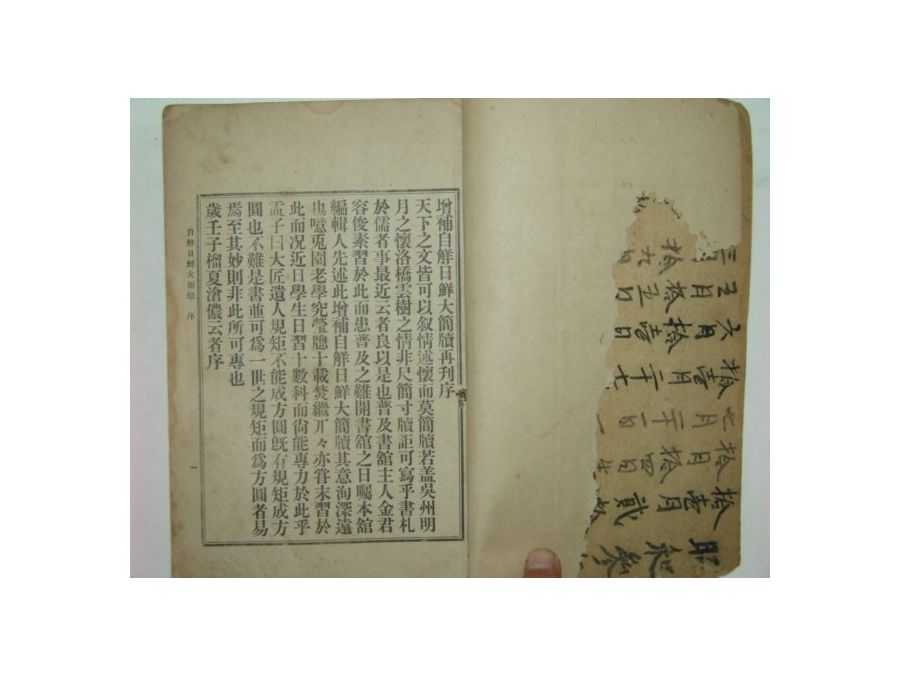 增補自鮮日鮮大簡牘再刊序
天下之文皆可以叙情述懷而莫簡牘若盖吳州明
月之懷洛橋雲樹之情非尺簡寸牘詎可寫乎書札
於儒者事最近云者良以是也普及書舘主人金君
容俊素習於此而患普及之難開書舘之日囑本舘
編輯人先述此增補自鮮日鮮大簡牘其意洵深遠
也噫兎園老學究瑩牕十載焚繼丌々亦甞未習於
此而况近日學生日習十數科而尙能專力於此乎
孟子曰大匠遺人規矩不能成方圓旣有規矩成方
圓也不難是書並可爲一世之規矩而爲方圓者易
焉至其妙則非此所可專也
歲壬子榴夏滄儂云者序
序
一
三
拾
五月
拾五
六月
拾壹日
拾壹月
二十七
七月
二十一日
拾月
拾四日
拾壹月
貳
昭和